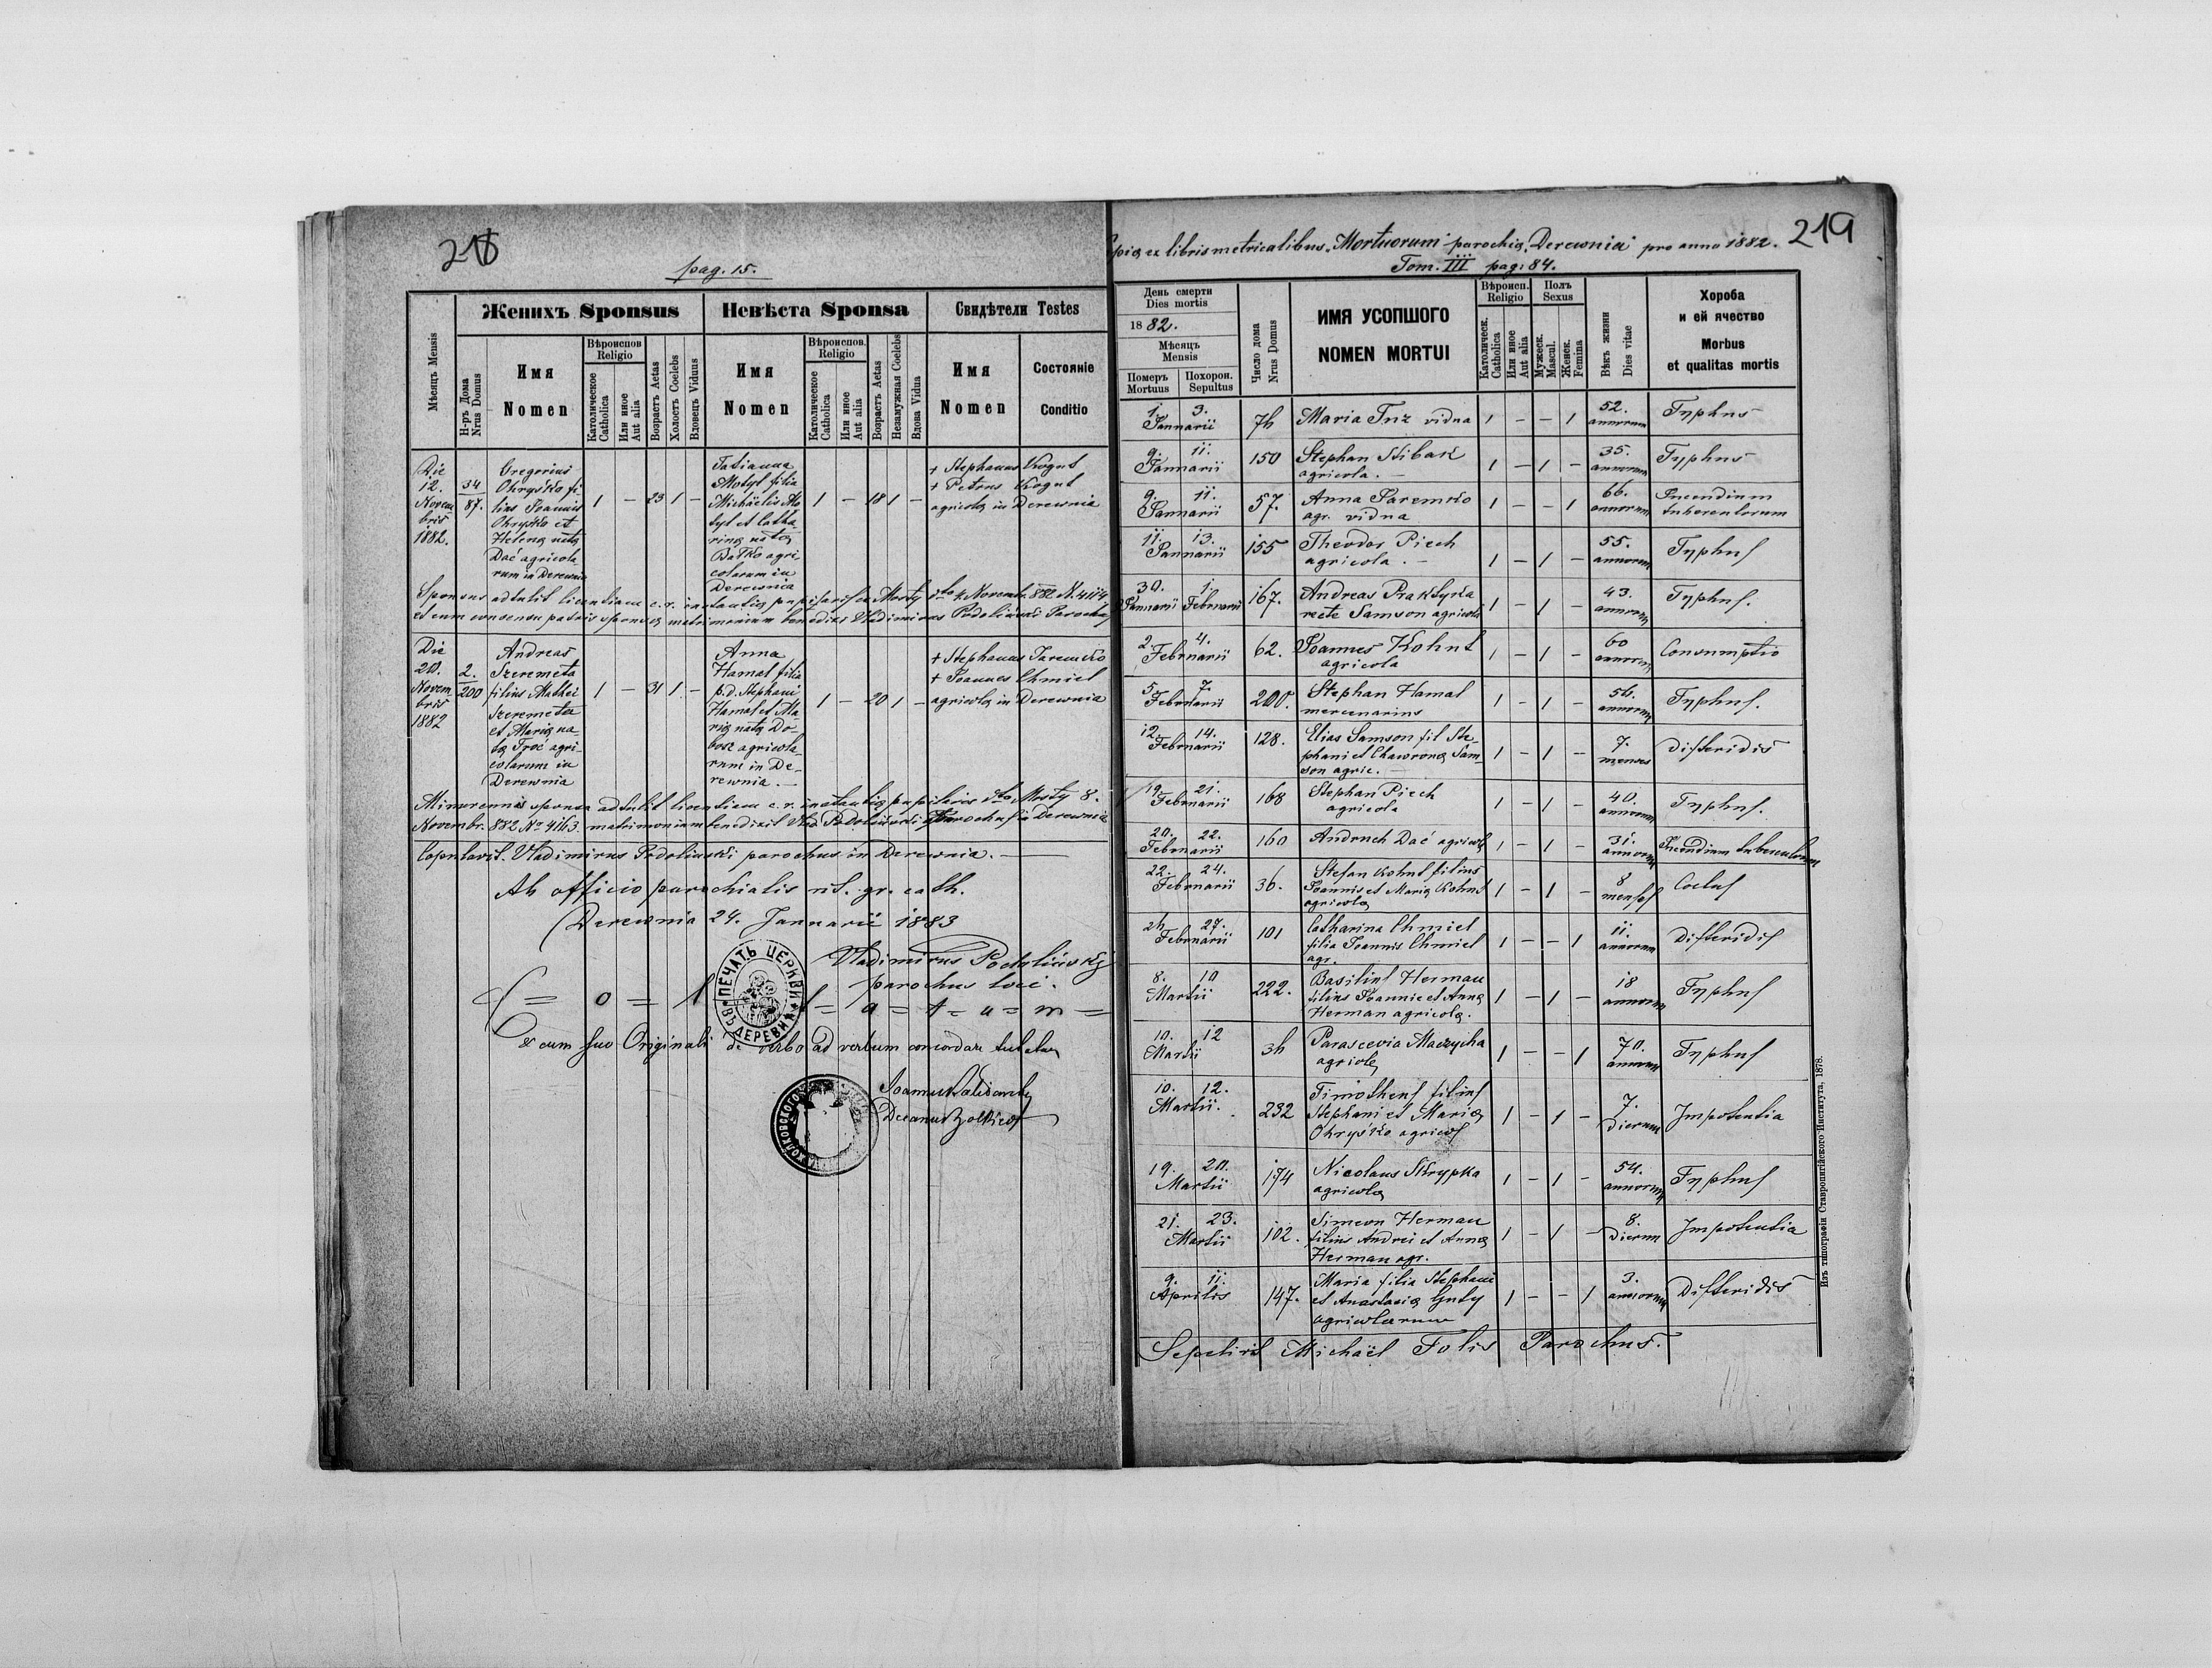 218
pag. 15.
Мѣсяцъ Mensis
Женихъ Sponsus
Невѣста Sponsa
Свидѣтели Testes
Н-ръ Дома Nrus Domus
Имя
Nomen
Вѣроиспов.
Religio
Католическое Catholica
Или иное Aut alia
Возрастъ Aetas
Холостъ Coelebs
Вдовецъ Viduus
Имя
Nomen
Вѣроиспов.
Religio
Католическое Catholica
Или иное Aut alia
Возрастъ Aetas
Незамужная Coelebs
Вдова Vidua
Имя
Nomen
Состояніе
Conditio
Die
12.
Novem
bris
1882.
34
87.
Gregorius
Ohryśko fi-
lius Joannis
Ohryśko et
Helenę natę
Dać agricola
rum in Derewnia
1 – 23 1 –
Tatianna
Motyl filia
Michaëlis Mo
tyl et Catha
rinę natę
Batko agri
colarum in
Derewnia
1 – 18 1 –
+ Stephanus Kogut
+ Petrus Kogut
agricolę in Derewnia
Sponsus adtulit licentiam c. r. instantię pupilaris Mosty Novembr. 882 N. 4114
et cum consensu patris sponsę matrimonium benedixi Vladimirus Podoliński Parochus
Die
20.
Novem
bris
1882
2.
200
Andreas
Szeremeta
filius Mathei
Szeremeta
et Marię na-
tę Troć agri-
colarum in
Derewnia
1 – 31 1 –
Anna
Hamal filia
p. d. Stephani
Hamal et Ma-
rię natę Do-
bosz agricola-
rum in De-
rewnia. –
1 – 20 1 –
+ Stephanus Jaremko
+ Joannes Chmiel
agricolę in Derewnia
Minorennis sponsa adtulit licentiam c. r. instantię pupilaris dto Mosty 8.
Novembr. 882 No 4163 matrimonium benedixit Vlad. Podoliński Parochus in Derewnia
Copulavit. Vladimirus Podoliński parochus in Derewnia. –
Ab officio parochialis rit. gr. cath.
Derewnia 24. Januarii 1883
Vladimirus Podoliński
parochus loci.
ПЕЧАТЬ ЦЕРКВИ ВЪ ДЕРЕВНИ
= o = l = a = t = u = m =
& cum suo Originali de verbo ad verbum concordare
Decanus
219
Copia ex libris metricalibus „Mortuorum" parochię „Derewnia" pro anno 1882.
Tom. III pag: 84.
День смерти
Dies mortis
1882.
Мѣсяцъ
Mensis
Померъ
Mortuus
Похорон.
Sepultus
Число дома
Nrus Domus
ИМЯ УСОПШОГО
NOMEN MORTUI
Вѣроисп.
Religio
Католическ.
Catholica
Или иное
Aut alia
Полъ
Sexus
Мужеск.
Mascul.
Женск.
Femina
Вѣкъ жизни
Dies vitae
Хороба
и ей ячество
Morbus
et qualitas mortis
1. 3. Januarii 74 Maria Tuz vidua 1 – – 1 52. annorum Typhus
9. 11. Januarii 150 Stephan Stibak agricola. – 1 – 1 – 35. annorum Typhus
9. 11. Januarii 57. Anna Jaremko agr. vidua 1 – – 1 66. annorum Incendium tuberculorum
11. 13. Januarii 155 Theodor Piech agricola. – 1 – 1 – 55. annorum Typhus
30. Januarii 1. Februarii 167. Andreas Praktyka recte Samson agricola 1 – 1 – 43. annorum Typhus.
2. 4. Februarii 62. Joannes Kohut agricola 1 – 1 – 60 annorum Consumptio
5. 7. Februarii 200. Stephan Hamal mercenarius 1 – 1 – 56. annorum Typhus.
12. 14. Februarii 128. Elias Samson fil Ste-
phani et Chawronę Sam-
son agric. – 1 – 1 – 7. menses Difteridis
19. 21. Februarii 168 Stephan Piech agricola 1 – 1 – 40. annorum Typhus.
20. 22. Februarii 160 Andruch Dać agricola 1 – 1 – 31. annorum Incendium tuberculorum
22. 24. Februarii 36. Stefan Kohut filius
Joannis et Marię Kohut
agricolę 1 – 1 – 8 menses
24 27. Februarii 101 Catharina Chmiel
filia Joannis Chmiel
agr. 1 – – 1 11. annorum Difteridis
8. 10 Martii 222. Basilius Herman
filius Joannis et Annę
Herman agricolę. 1 – 1 – 18 annorum Typhus
10. 12 Martii 34 Parascevia Maczycha
agricolę 1 – – 1 70. annorum Typhus
10. 12. Martii. 232 Timotheus filius
Stephani et Marię
Ohryśko agricol 1 – 1 – 7. dierum Impotentia
19. 20. Martii 174 Nicolaus Skrypka
agricolę 1 – 1 – 54. annorum Typhus
21. 23. Martii 102. Simeon Herman
filius Andrei et Annę
Herman agr. 1 – 1 – 8. dierum Impotentia
9. 11. Aprilis 147. Maria filia Stephani
et Anastasię Guty
agricolarum 1 – – 1 3. annorum Difteridis
Sepelivit Michaël Folis Parochus.
Изъ типографіи Ставропигійского Института, 1878.